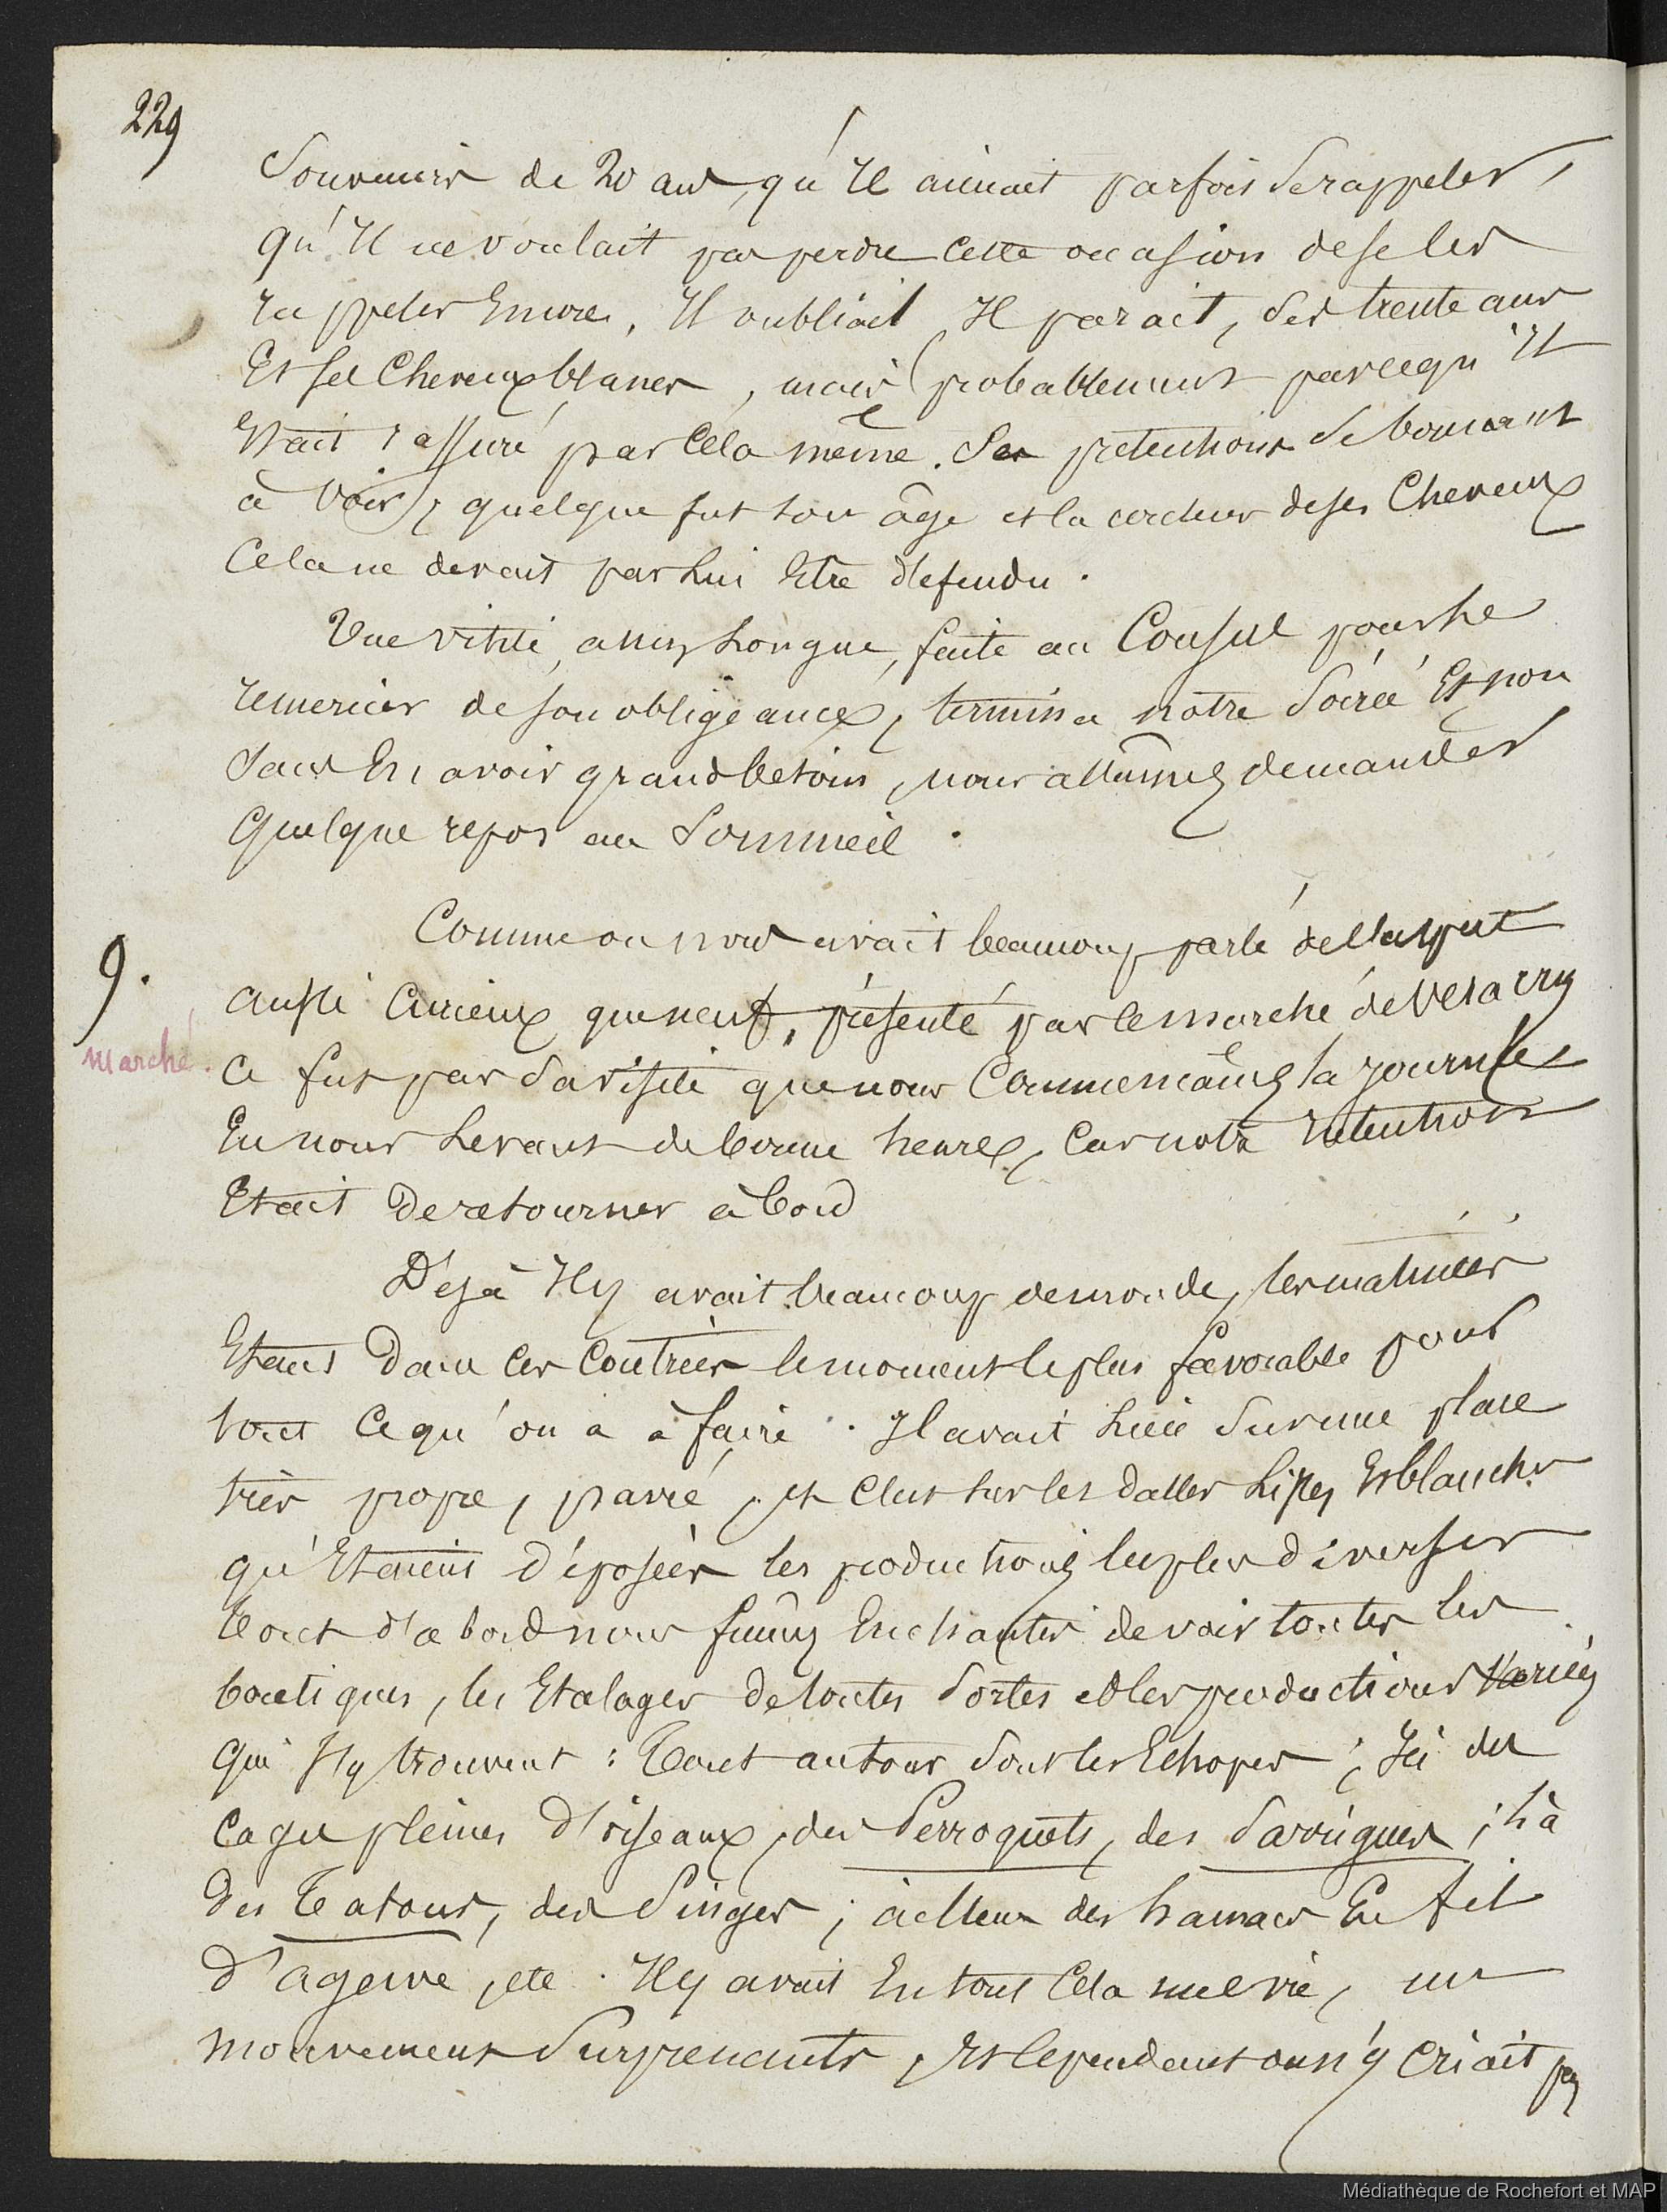 229
Souvenirs de 20 ans, qu'Il aimait parfois Se rappeler,
qu'Il ne voulait pas perdre cette occasion de se les
rappeler Encore. Il oubliait, Il parait, Ses trente ans
Et ses Cheveux blancs, mais (probablement parcequ'Il
Etait rassuré par Cela même. Ses pretentions Se bornant
à Voir), quelque fut son âge et la couleur de ses Cheveux
Cela ne devait pas Lui Etre défendu.
Une visite, assez Longue, faite au Consul pour Le
remercier de son obligeance, termina notre Soirée Et, non
Sans En avoir grand besoin, nous allâmes demander
Quelque repos au Sommeil.
9.
Comme on nous avait beaucoup parlé de l'aspect
aussi Curieux que neuf, présenté par le marché de Vera Cruz
marché.
Ce fut par Sa visite que nous Commençâmes la journée
En nous Levant de bonne heure, Car notre Intention
Etait De retourner à bord
Déjà Il y avait beaucoup de monde, les matinées
Etant Dans Ces Contrées le moment le plus favorable pour
tout Ce qu'on a à faire. Il avait Lieu Sur une place
très propre, pavée, et C'est sur les dalles Lisses Et blanches
qu'Etaient déposées les productions les plus diverses
Tout d'abord nous fûmes Enchantés de voir toutes les
boutiques, les Etalages de toutes Sortes et les productions Variées
Qui s'y trouvent : Tout autour Sont les Echopes ; Ici des
Cages pleines d'oiseaux, des Perroquets, des Sarrigues ; Là
Des Tatous, des Singes ; ailleurs des hamacs En fil
d'agave, etc. Il y avait En tout Cela une vie, un
mouvement Surprenants, Et cependant on n'y criait pas
Médiathèque de Rochefort et MAP